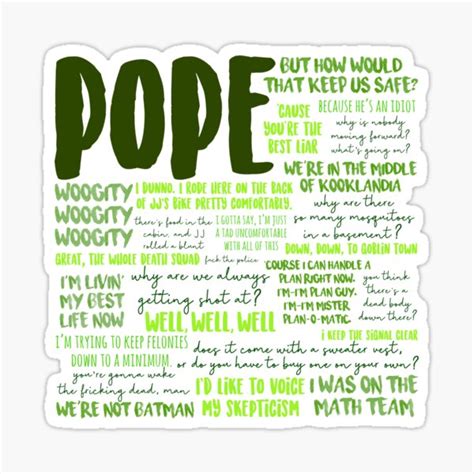 POPE
BUT HOW WOULD
THAT KEEP US SAFE?
'CAUSE
YOU'RE THE
BEST LIAR
BECAUSE HE'S AN IDIOT
why is nobody
moving forward?
what's going on?
WE'RE IN THE MIDDLE
OF KOOKLANDIA
WOOGITY
WOOGITY
WOOGITY
I DUNNO. I RODE HERE ON THE BACK
OF JJ'S BIKE PRETTY COMFORTABLY.
there's food in the
cabin, and JJ
rolled a blunt
I GOTTA SAY, I'M JUST
A TAD UNCOMFORTABLE
WITH ALL OF THIS
why are there
so many mosquitoes
in a basement?
GREAT, THE WHOLE DEATH SQUAD
fuck the police
DOWN, DOWN, TO GOBLIN TOWN
I'M LIVIN'
MY BEST
LIFE NOW
why are we always
getting shot at?
'COURSE I CAN HANDLE A
PLAN RIGHT NOW.
I'M-I'M PLAN GUY.
I'M-I'M MISTER
PLAN-O-MATIC.
you think
there's a
dead body
down there?
WELL, WELL, WELL
I KEEP THE SIGNAL CLEAR
I'M TRYING TO KEEP FELONIES
DOWN TO A MINIMUM.
does it come with a sweater vest,
or do you have to buy one on your own?
you're gonna wake
the fricking dead, man
I'D LIKE TO VOICE
MY SKEPTICISM
I WAS ON THE
MATH TEAM
WE'RE NOT BATMAN